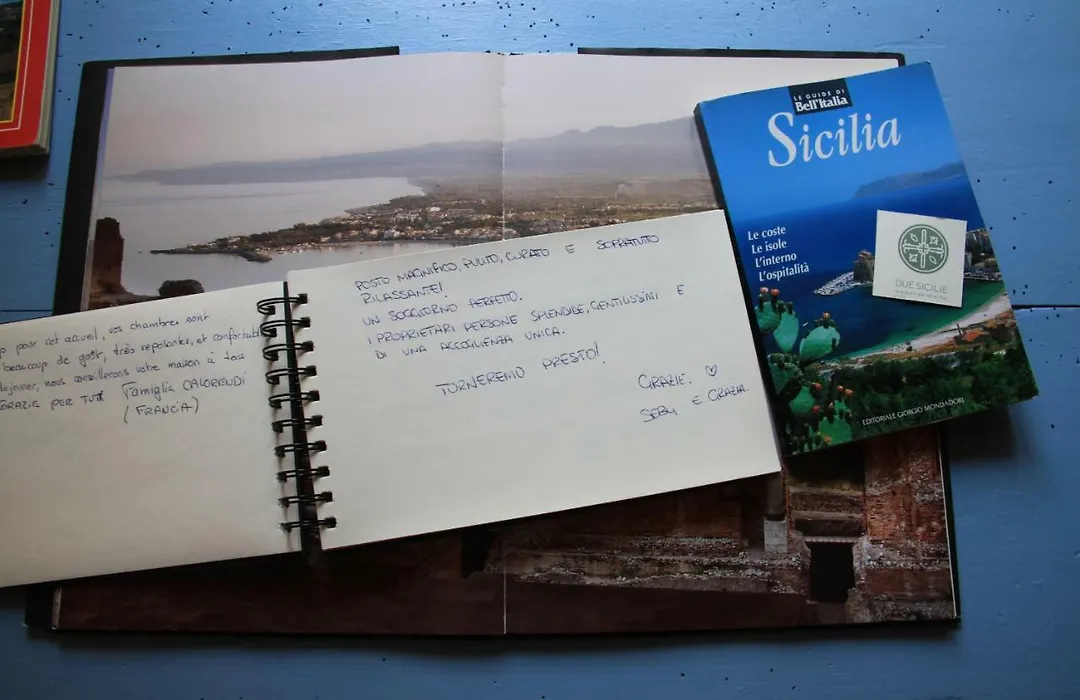 pour cet accueil, vos chambres sont
beaucoup de goût, très reposantes, et confortabl
dejeuner, nous conseillerons votre maison à tous
GRAZIE PER TUTTI Famiglia
(FRANCIA)
POSTO MAGNIFICO, PULITO, CURATO E SOPRATUTTO
RILASSANTE!
UN SOGGIORNO PERFETTO.
I PROPRIETARI PERSONE SPLENDIDE, GENTILISSIMI E
DI UNA ACCOGLIENZA UNICA.
TORNEREMO PRESTO!
GRAZIE. ♡
SEBY E GRAZIA.
LE GUIDE DI
Bell'Italia
Sicilia
Le coste
Le isole
L'interno
L'ospitalità
DUE SICILIE
EDITORIALE GIORGIO MONDADORI